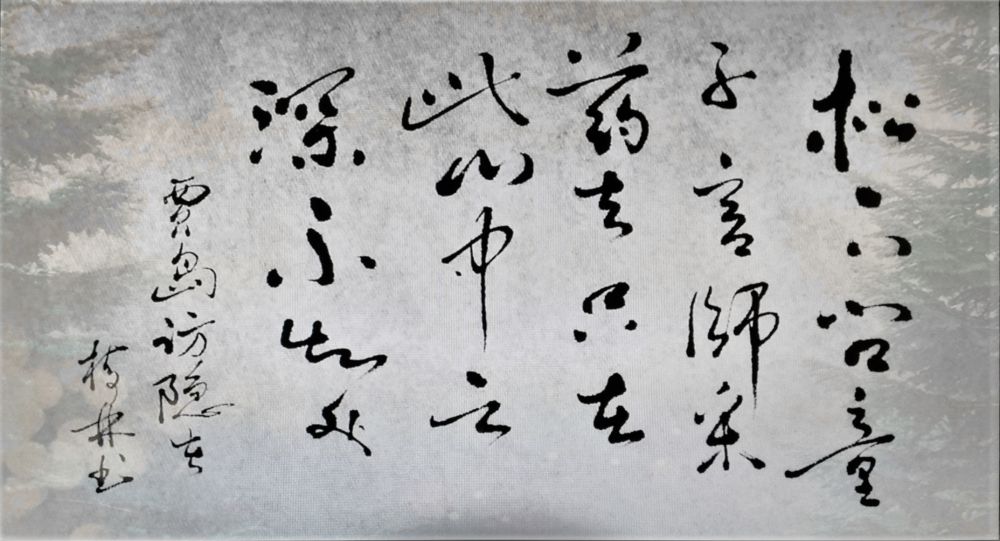 松下问童
子言師采
药去只在
此山中云
深不知处
贾岛访隐者
林书